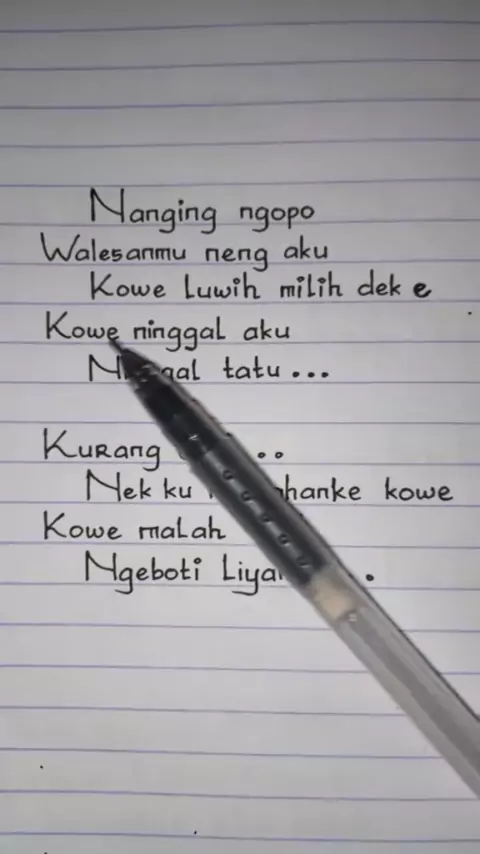 Nanging ngopo
Walesanmu neng aku
Kowe Luwih milih dek e
Kowe ninggal aku
tatu...
Kurang
Nek ku kowe
Kowe maLah
Ngeboti